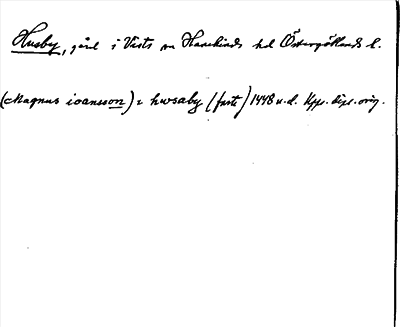 Husby, gård i Vists sn Hanekinds hd Östergötlands l.
(Magnus ioansson) i hwsaby (fasti) 1448 u.d. Upps. dipl. orig.